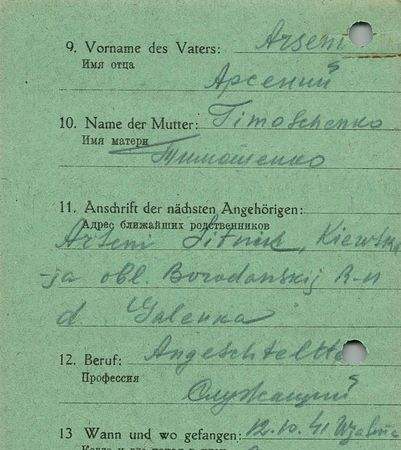 9. Vorname des Vaters: Arseni
Имя отца
Арсений
10. Name der Mutter: Timoschenko
Имя матери
Тимошенко
11. Anschrift der nächsten Angehörigen:
Адрес ближайших родственников
Arseni Sitnik, Kiewska
-ja obl. Borodanskij R-n
d. Galenka
12. Beruf: Angeschtellte
Профессия
Служащий
13 Wann und wo gefangen: 12.10.41